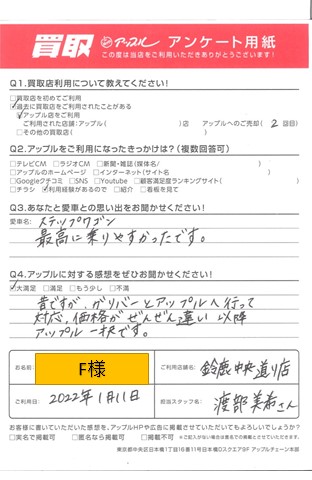 買取 アップル アンケート用紙
この度は当店をご利用いただきありがとうございます!
Q1.買取店利用について教えてください!
□買取店を初めてご利用
☑過去に買取店をご利用されたことがある
☑アップル店をご利用
ご利用された店舗:アップル( )店 アップルへのご売却( 2 回目)
□その他の買取店( )
Q2.アップルをご利用になったきっかけは?(複数回答可)
□テレビCM □ラジオCM □新聞・雑誌(媒体名/ )
□アップルのホームページ □インターネット(サイト名 )
□Googleクチコミ □SNS □Youtube □顧客満足度ランキングサイト( )
□チラシ ☑利用経験があるので □紹介 □看板を見て
Q3.あなたと愛車との思い出をお聞かせください!
愛車名: ステップワゴン
最高に乗りやすかったです。
Q4.アップルに対する感想をぜひお聞かせください!
☑大満足 □満足 □もう少し □不満
昔ですが、ガリバーとアップルへ行って
対応、価格がぜんぜん違い以降
アップル一択です。
お名前: F様 ご利用店舗名: 鈴鹿中央通り店
ご利用日: 2022年1月11日 担当スタッフ名: 渡部美寿さん
お客様に書いていただいた感想を、アップルHPや広告に掲載させていただいてもよろしいでしょうか?
□実名で掲載可 □匿名なら掲載可 □掲載不可 ※ご記入が無い場合は匿名での掲載とさせていただきます。
東京都中央区日本橋1丁目16番11号日本橋Dスクエア9F アップルチェーン本部